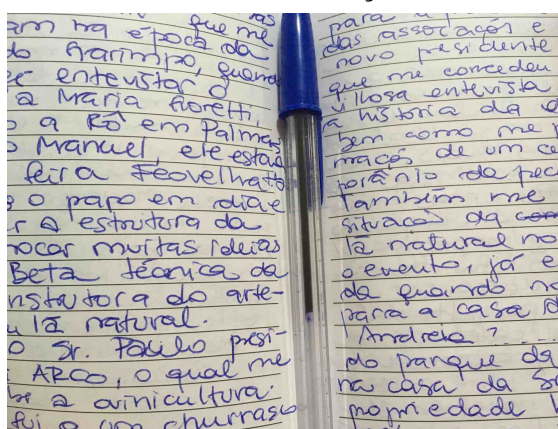 que me
am na época da
do garimpo, quando
entevistar o
a Maria fioretti,
a Rô em Palmas
o Manuel, ele estava
feira Feovelha
o papo em dia e
r a estrutura da
rocar muitas ideias
Beta técnica da
nstrutora do arte-
lã natural.
o Sr. Paulo presi-
ARCO, o qual me
a ovinicultura.
fui a um churrasco
para
das associações e
novo presidente
que me concedeu
villosa entevista
a história da
bem como me
mações de um ce
da pec
também me
situação da
lã natural no
o evento, já e
da quando no
para a casa d
Andreia?
do parque da
na casa da
propriedade